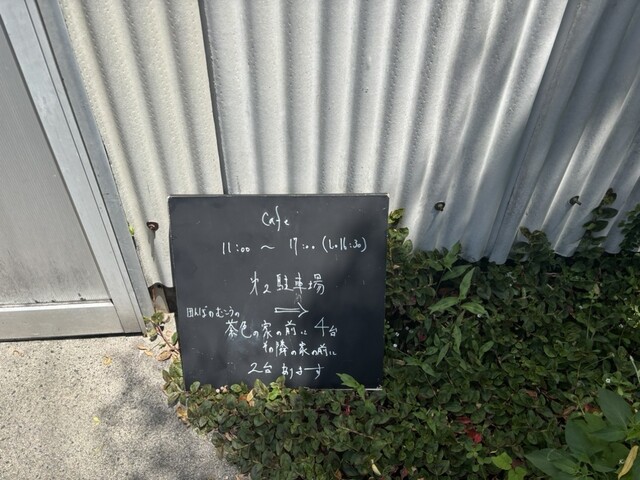 Cafe
11:00 〜 17:00 (L.o 16:30)
才2 駐車場
⇒
田んぼのむこうの
茶色の家の前に 4台
その隣の家の前に
2台 あります